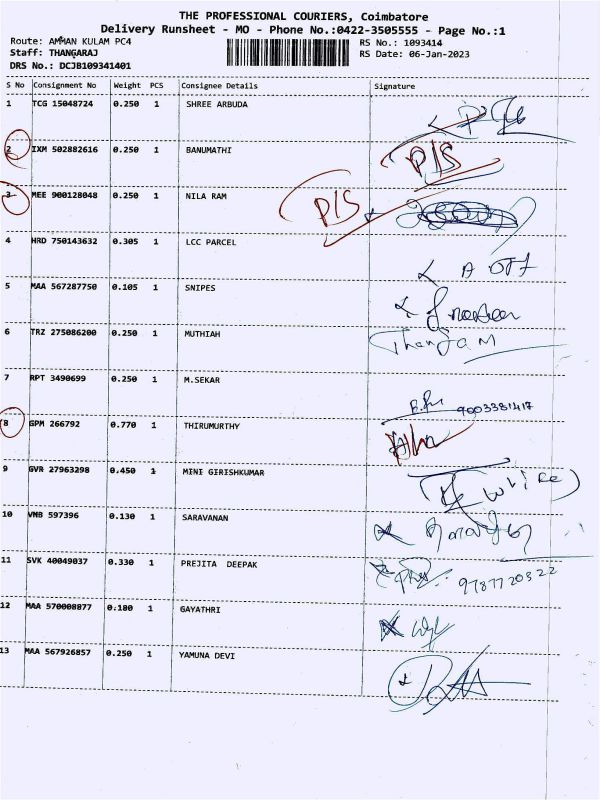 THE PROFESSIONAL COURIERS, Coimbatore
Delivery Runsheet - MO - Phone No.:0422-3505555 - Page No.:1
Route: AMMAN KULAM PC4 RS No.: 1093414
Staff: THANGARAJ RS Date: 06-Jan-2023
DRS No.: DCJB109341401
S No Consignment No Weight PCS Consignee Details Signature
1 TCG 15048724 0.250 1 SHREE ARBUDA
2 IXM 502882616 0.250 1 BANUMATHI P/S
3 MEE 900128048 0.250 1 NILA RAM P/S
4 HRD 750143632 0.305 1 LCC PARCEL
5 MAA 567287750 0.105 1 SNIPES
6 TRZ 275086200 0.250 1 MUTHIAH Thangam
7 RPT 3490699 0.250 1 M.SEKAR 9003381417
8 GPM 266792 0.770 1 THIRUMURTHY
9 GVR 27963298 0.450 1 MINI GIRISHKUMAR
10 VMB 597396 0.130 1 SARAVANAN
11 SVK 40049037 0.330 1 PREJITA DEEPAK 9787720322
12 MAA 570008877 0.180 1 GAYATHRI
13 MAA 567926857 0.250 1 YAMUNA DEVI